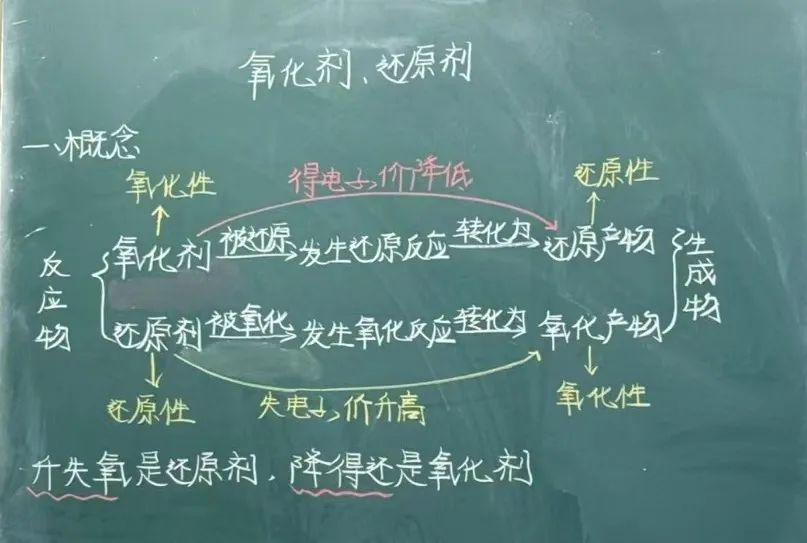 氧化剂、还原剂
一、概念
氧化性 得电子,价降低 还原性
反应物 { 氧化剂 被还原 发生还原反应 转化为 还原产物 } 生成物
还原剂 被氧化 发生氧化反应 转化为 氧化产物
还原性 失电子,价升高 氧化性
升失氧是还原剂,降得还是氧化剂